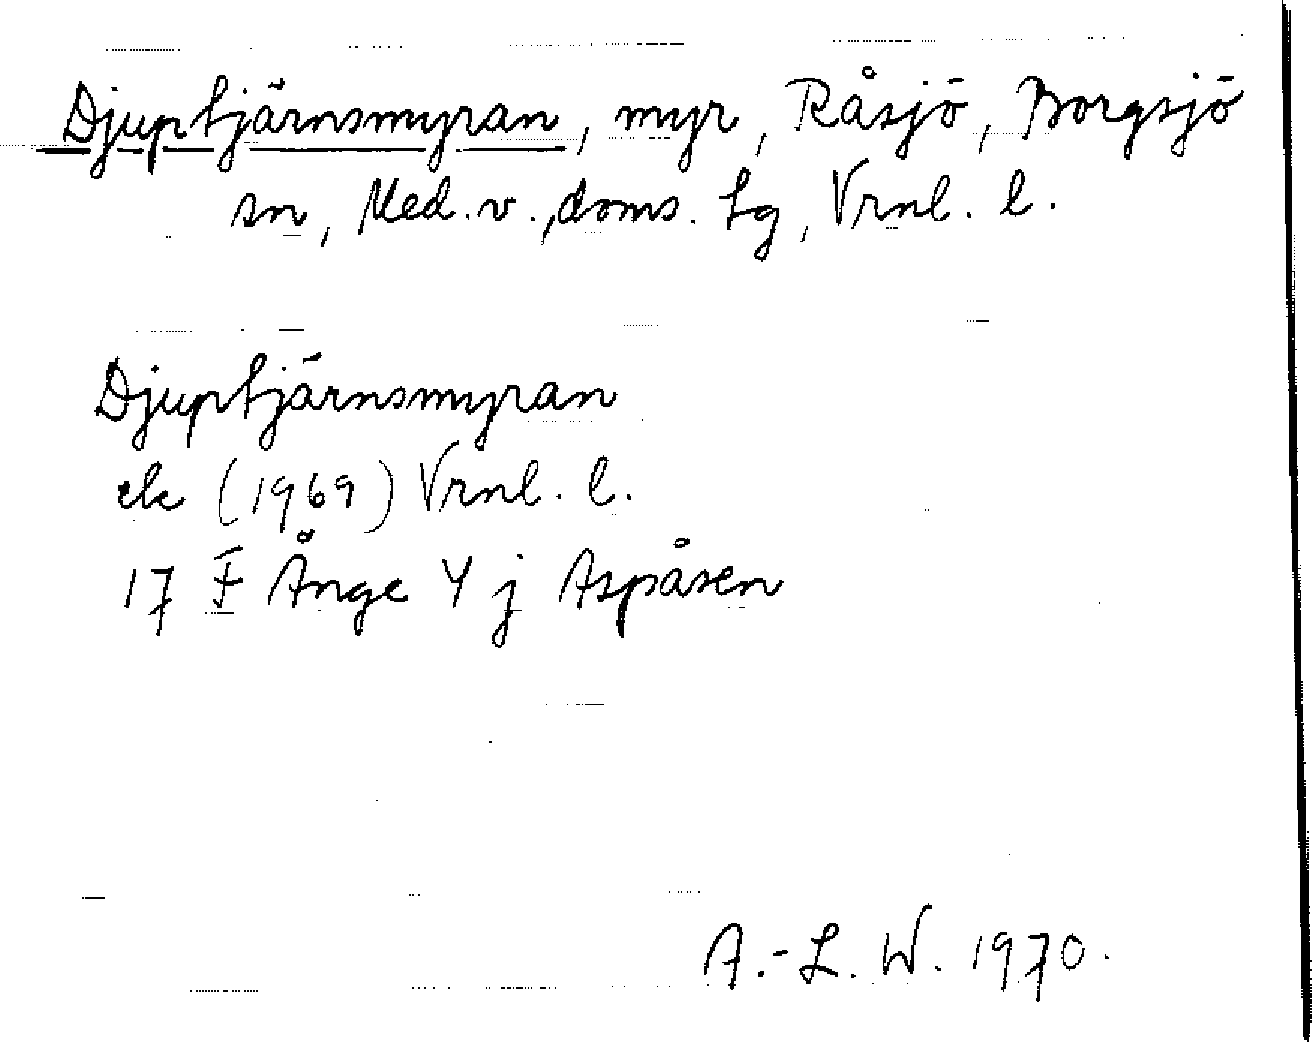 Djuptjärnsmyran, myr, Råsjö, Borgsjö
sn, Med. v., doms. tg, Vrnl. l.
Djuptjärnsmyran
ek (1969) Vrnl. l.
17 F Ånge Y j Aspåsen
A.-L. W. 1970.